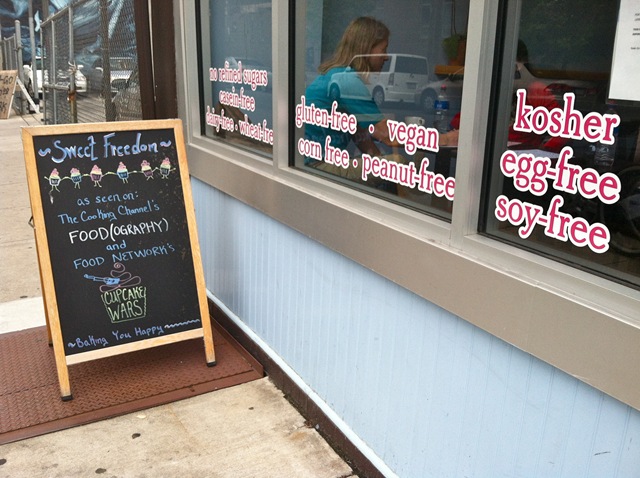 ~ Sweet Freedom ~
as seen on:
The Cooking Channel's
FOOD(OGRAPHY)
and
FOOD NETWORK'S
CUPCAKE
WARS
~ Baking You Happy ~
no refined sugars
casein-free
dairy-free · wheat-fre
gluten-free · vegan
corn free · peanut-free
kosher
egg-free
soy-free